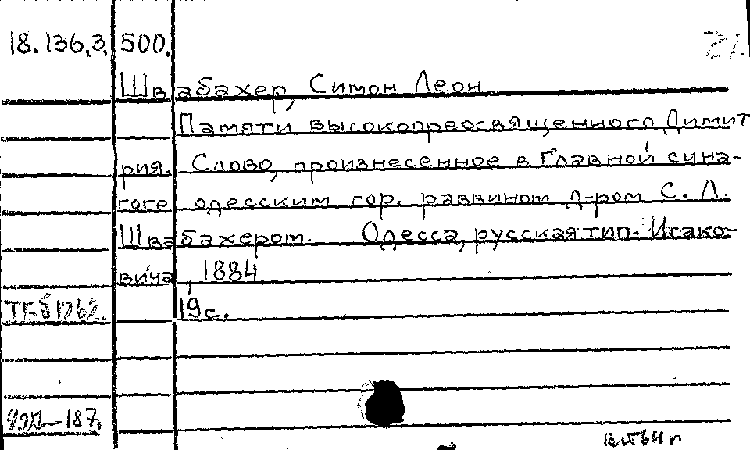 18.136.3.500.
Швабахер, Симон Леон
Памяти высокопреосвященного Димит
рия. Слово, произнесенное в Главной сина-
гоге одесским гор. раввином д-ром С. Л.
Швабахером. Одесса, русская тип. Исако-
вича, 1884
19с.